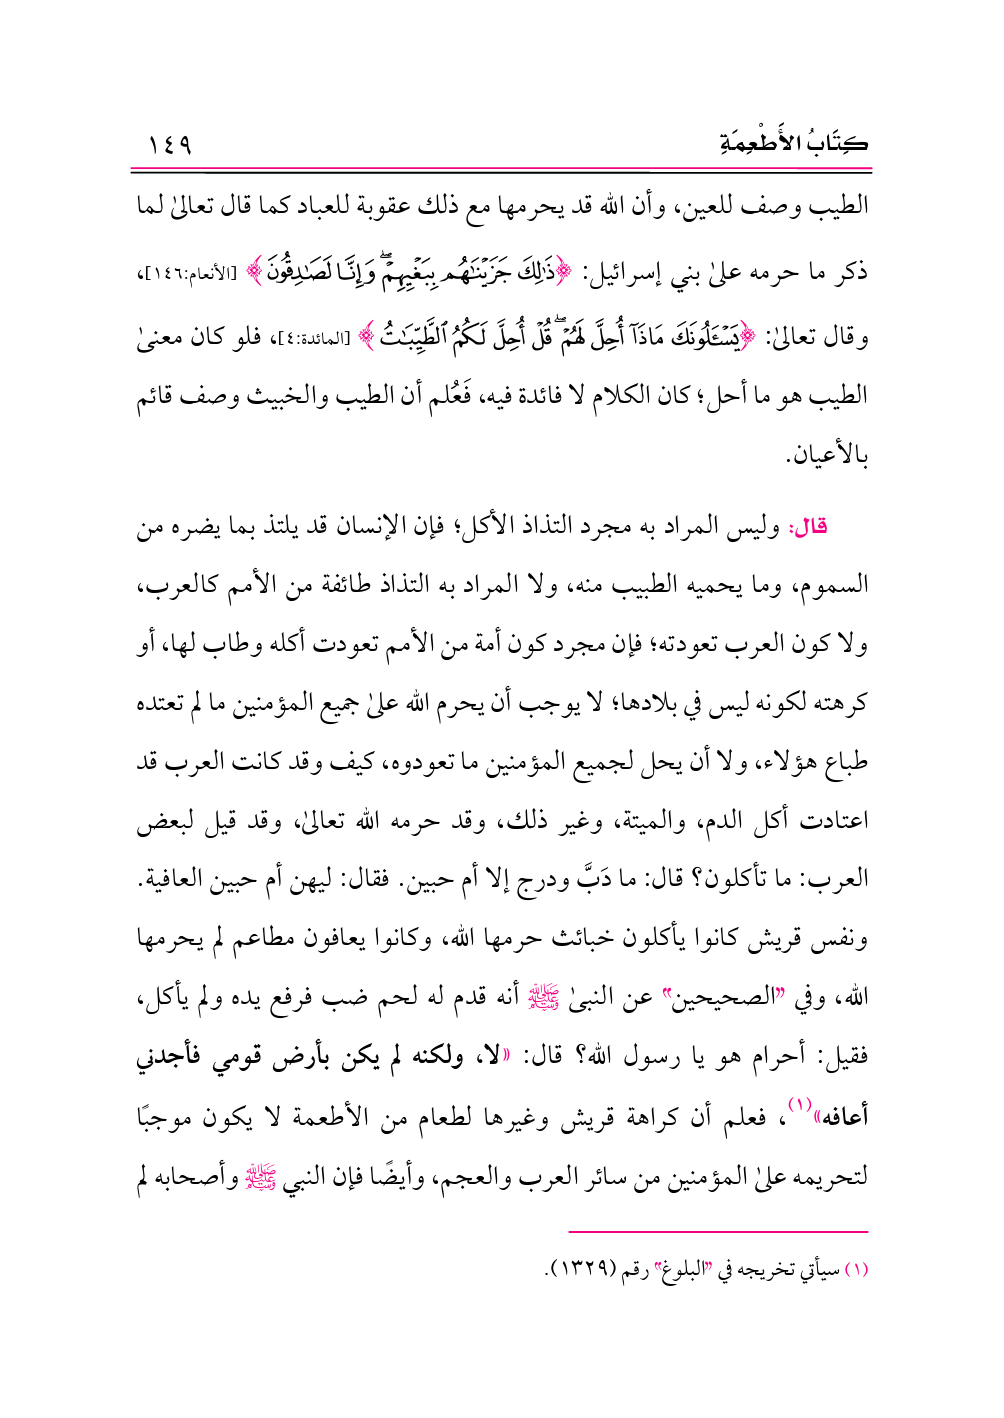 كِتَابُ الأَطْعِمَةِ ١٤٩
الطيب وصف للعين، وأن الله قد يحرمها مع ذلك عقوبة للعباد كما قال تعالىٰ لما
ذكر ما حرمه علىٰ بني إسرائيل: ﴿ذَٰلِكَ جَزَيْنَٰهُم بِبَغْيِهِمْ ۖ وَإِنَّا لَصَٰدِقُونَ﴾ [الأنعام:١٤٦]،
وقال تعالىٰ: ﴿يَسْـَٔلُونَكَ مَاذَآ أُحِلَّ لَهُمْ ۖ قُلْ أُحِلَّ لَكُمُ ٱلطَّيِّبَٰتُ﴾ [المائدة:٤]، فلو كان معنىٰ
الطيب هو ما أحل؛ كان الكلام لا فائدة فيه، فَعُلم أن الطيب والخبيث وصف قائم
بالأعيان.
قال: وليس المراد به مجرد التذاذ الأكل؛ فإن الإنسان قد يلتذ بما يضره من
السموم، وما يحميه الطبيب منه، ولا المراد به التذاذ طائفة من الأمم كالعرب،
ولا كون العرب تعودته؛ فإن مجرد كون أمة من الأمم تعودت أكله وطاب لها، أو
كرهته لكونه ليس في بلادها؛ لا يوجب أن يحرم الله علىٰ جميع المؤمنين ما لم تعتده
طباع هؤلاء، ولا أن يحل لجميع المؤمنين ما تعودوه، كيف وقد كانت العرب قد
اعتادت أكل الدم، والميتة، وغير ذلك، وقد حرمه الله تعالىٰ، وقد قيل لبعض
العرب: ما تأكلون؟ قال: ما دَبَّ ودرج إلا أم حبين. فقال: ليهن أم حبين العافية.
ونفس قريش كانوا يأكلون خبائث حرمها الله، وكانوا يعافون مطاعم لم يحرمها
الله، وفي "الصحيحين" عن النبىٰ ﷺ أنه قدم له لحم ضب فرفع يده ولم يأكل،
فقيل: أحرام هو يا رسول الله؟ قال: «لا، ولكنه لم يكن بأرض قومي فأجدني
أعافه»(١)، فعلم أن كراهة قريش وغيرها لطعام من الأطعمة لا يكون موجبًا
لتحريمه علىٰ المؤمنين من سائر العرب والعجم، وأيضًا فإن النبي ﷺ وأصحابه لم
(١) سيأتي تخريجه في "البلوغ" رقم (١٣٢٩).